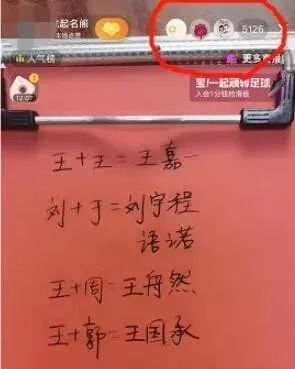 起名阁
本场点赞
5126
人气榜
更多直播
宝!一起顽转足球
入会1分钱抢滑板
12:07
王+王=王嘉一
刘+于=刘宇程
语诺
王+周=王舟然
王+郭=王国承